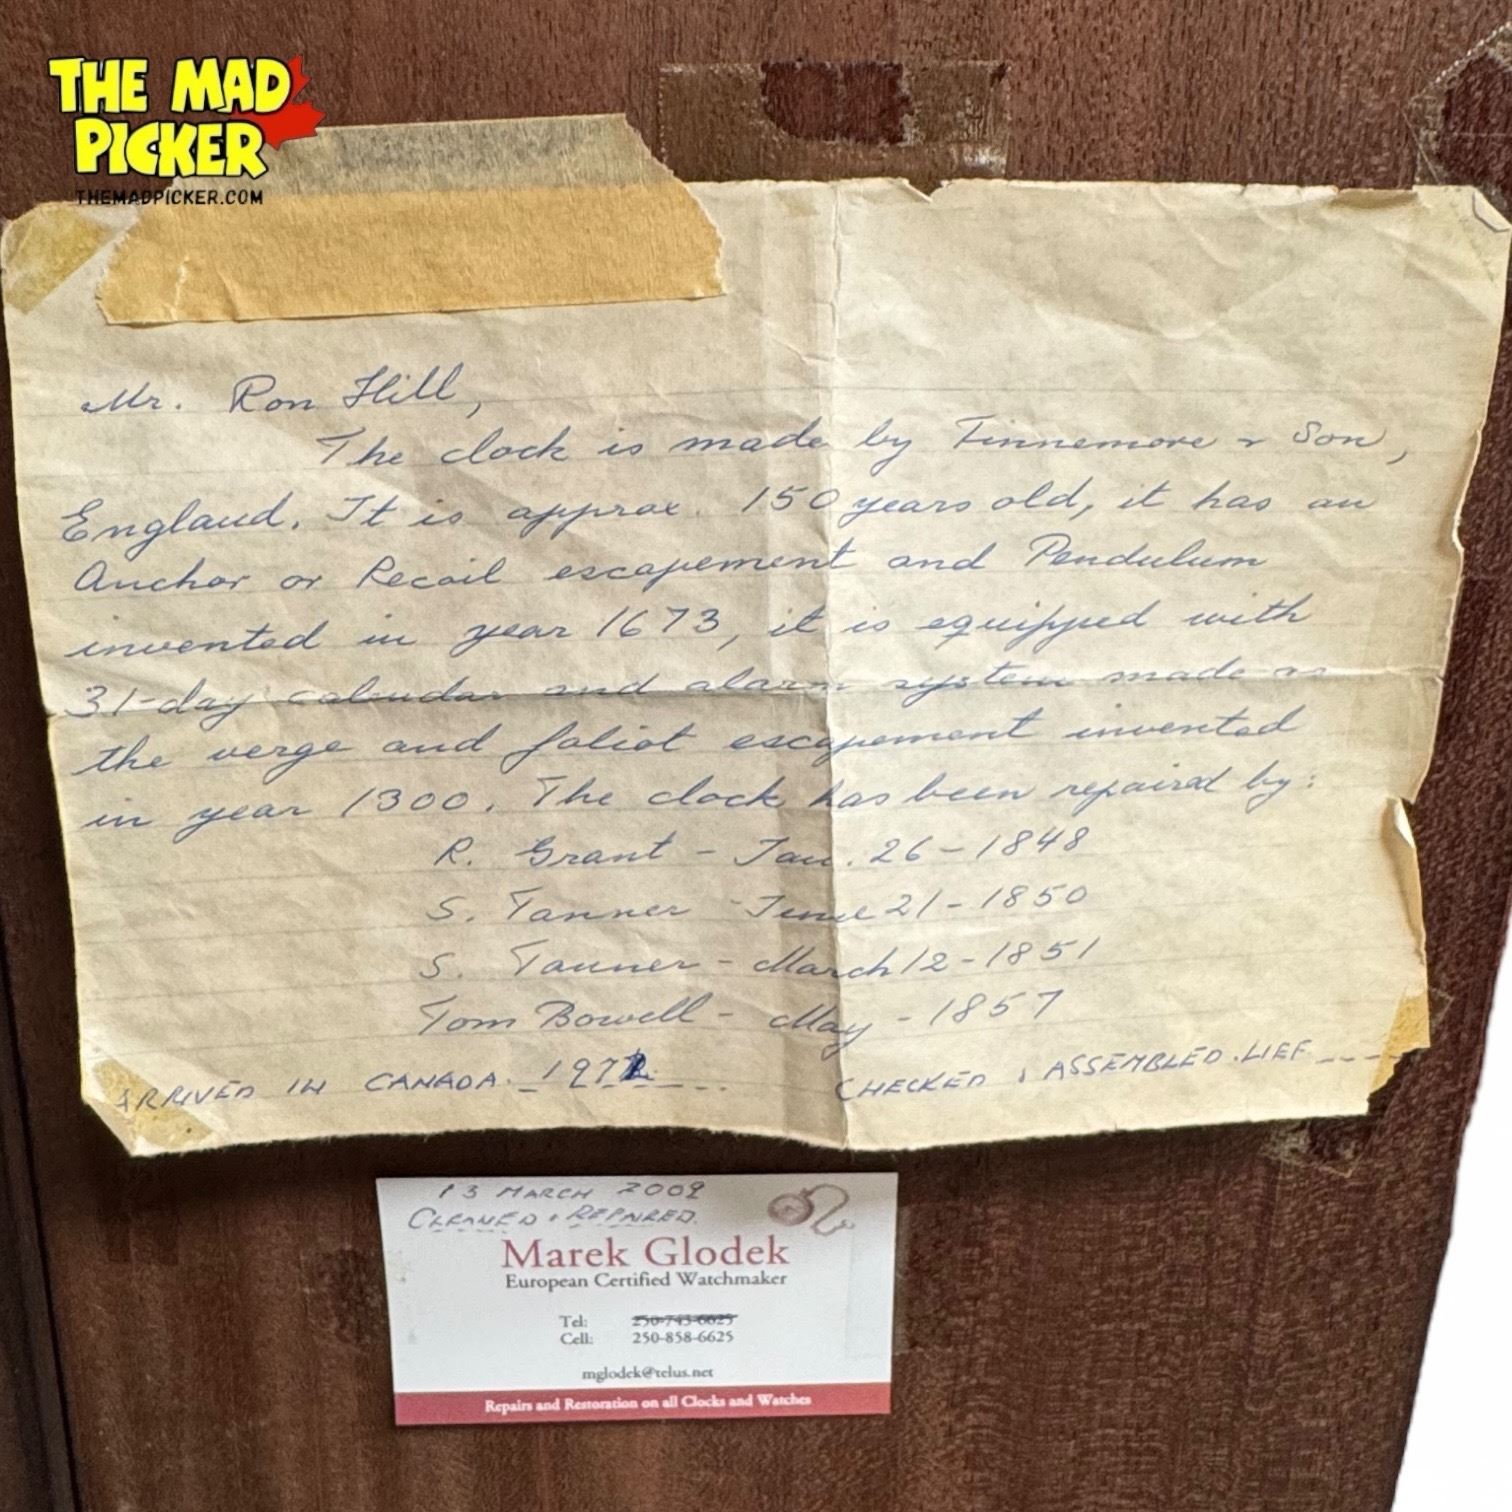 THE MAD
PICKER
THEMADPICKER.COM
Mr. Ron Hill,
The clock is made by Finnemore & Son,
England. It is approx. 150 years old, it has an
Anchor or Recoil escapement and Pendulum
invented in year 1673, it is equipped with
31-day calendar and alarm system made as
the verge and foliot escapement invented
in year 1300. The clock has been repaired by:
R. Grant - Jan. 26-1848
S. Tanner - June 21-1850
S. Tanner - March 12-1851
Tom Bowell - May - 1857
ARRIVED IN CANADA.
CHECKED & ASSEMBLED.
13 MARCH 2009
CLEANED & REPAIRED.
Marek Glodek
European Certified Watchmaker
Tel: 250-743-6625
Cell: 250-858-6625
mglodek@telus.net
Repairs and Restoration on all Clocks and Watches